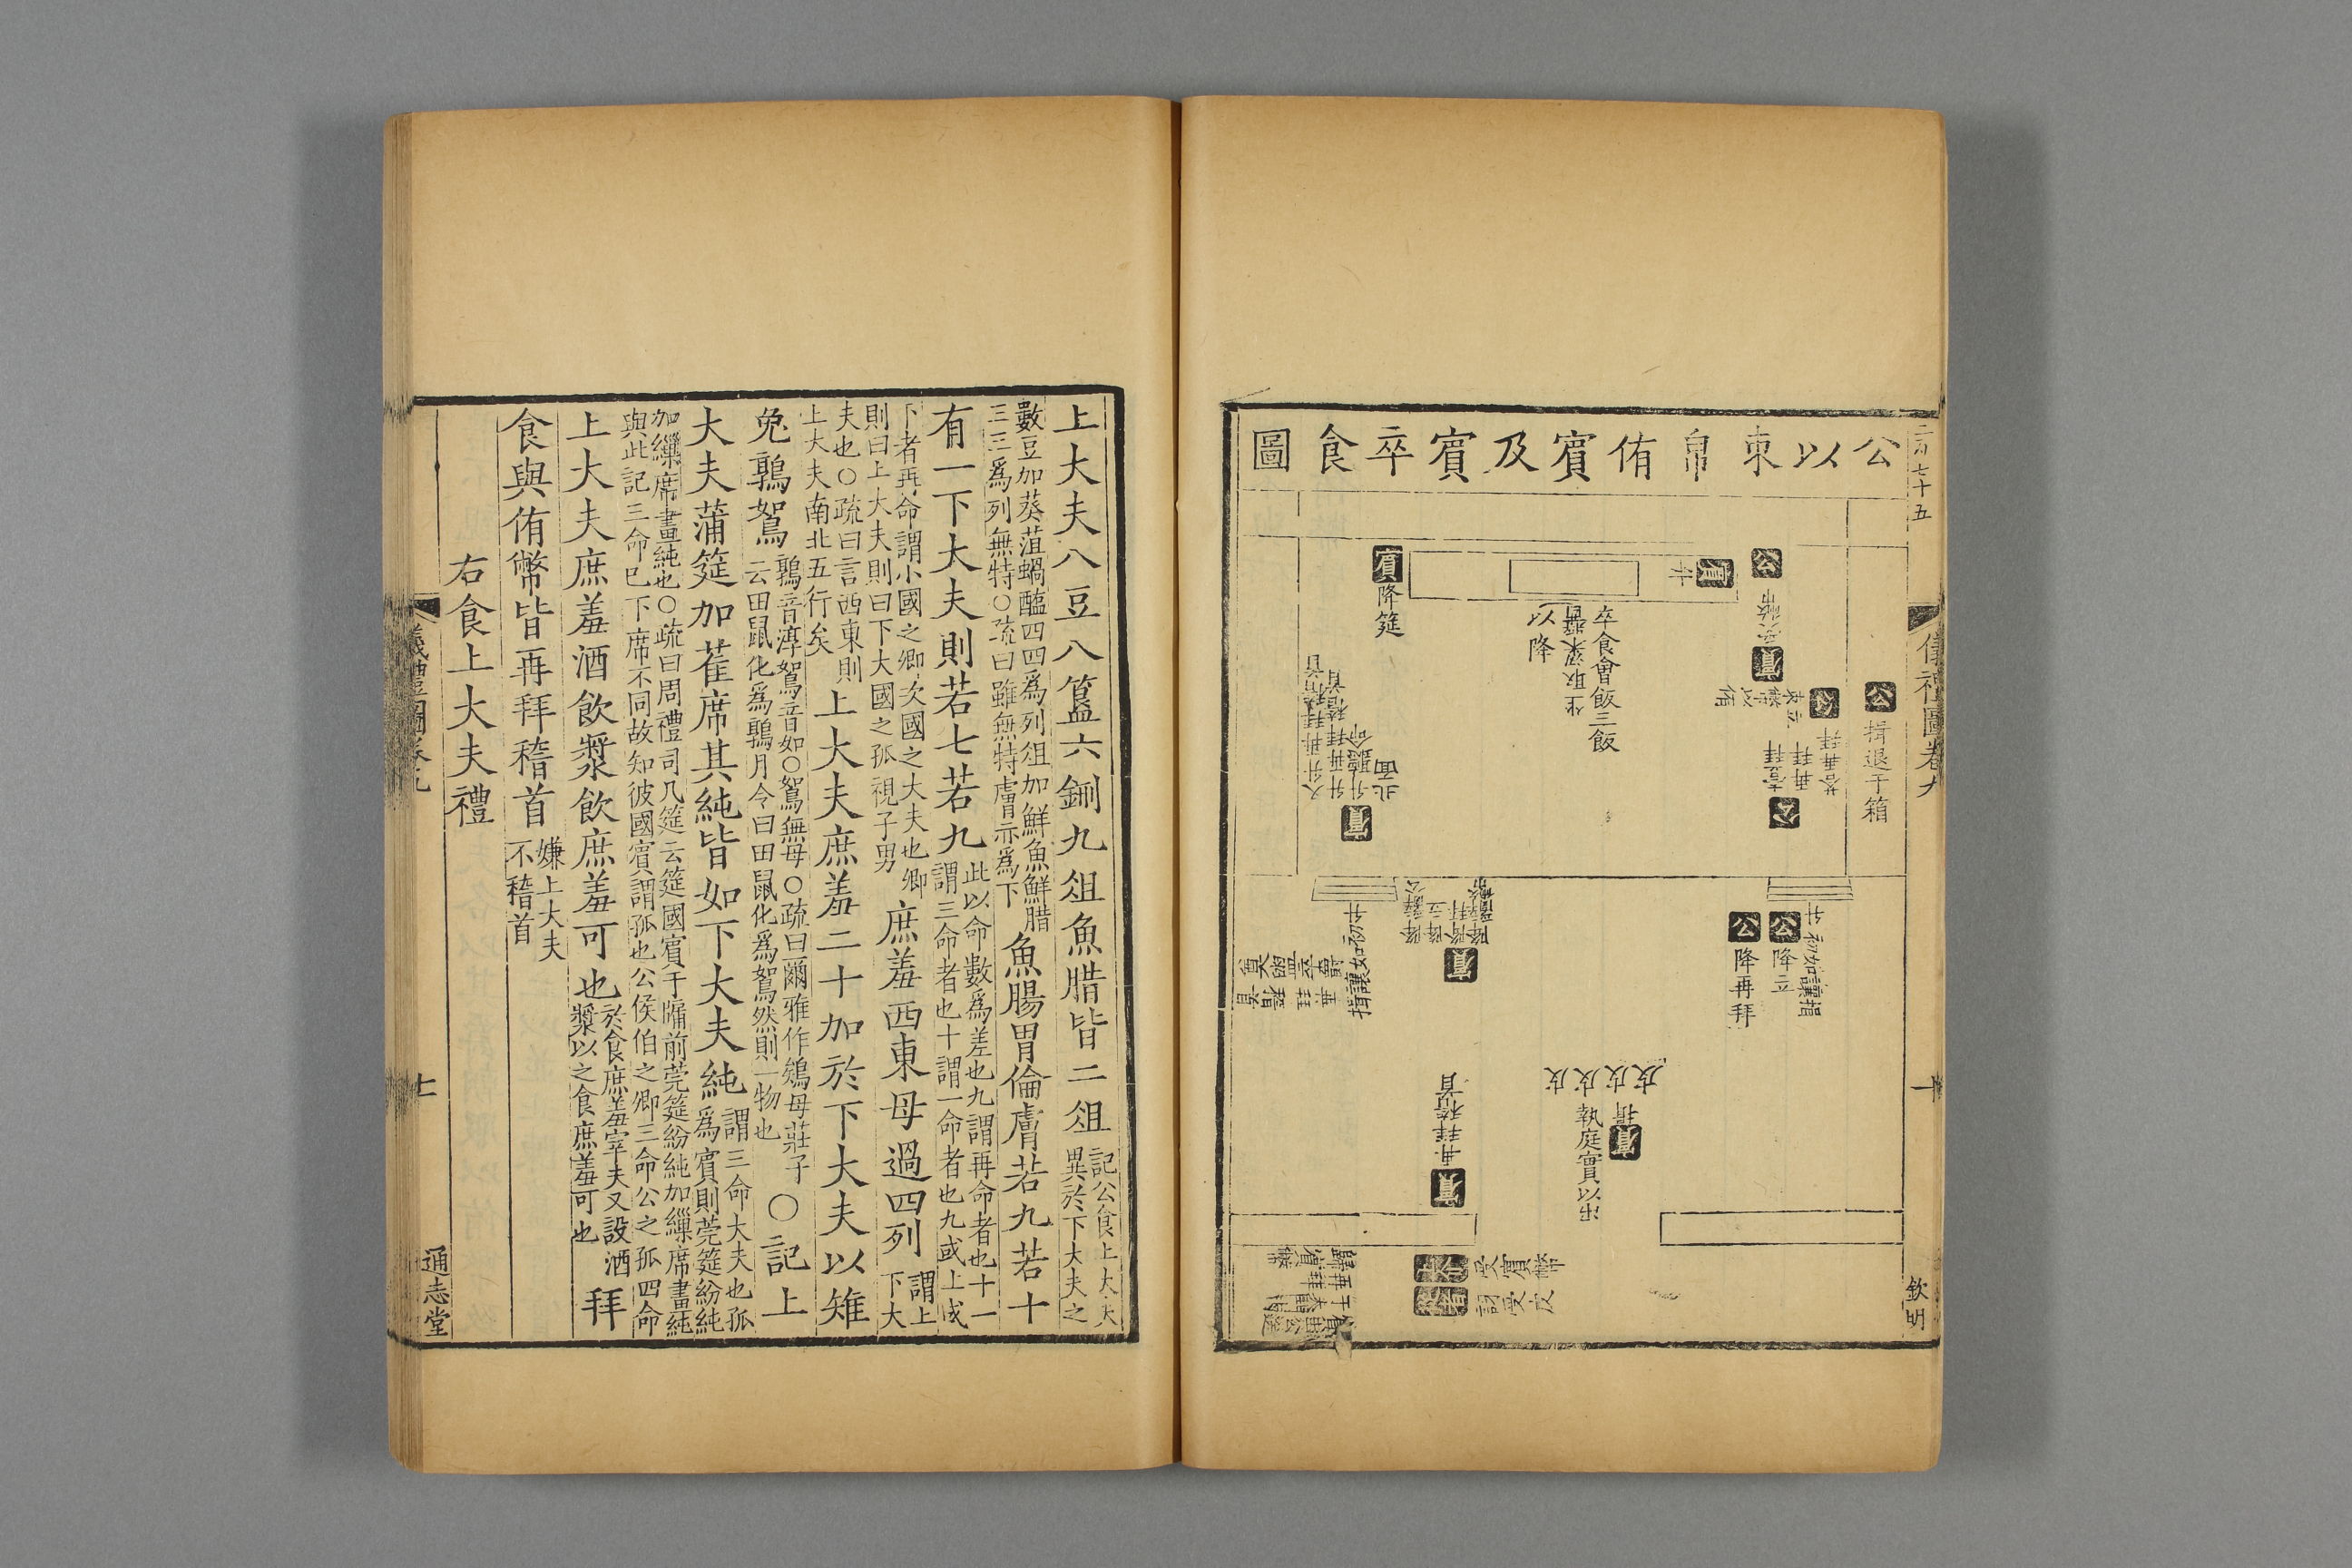 公以束帛侑賓及賓卒食圖
儀禮圖卷九
欽明
公
揖退于箱
公
賓
公
荅再拜
再拜
壹拜
公
賓
升
卒食會飯三飯
坐取粱醬
以降
賓降筵
北面
賓
升聽命
升再拜稽首
升初如讓揖
公降立
公降再拜
賓
揖讓如初升
皮皮皮皮
賓
揖
執庭實以出
賓
再拜稽首
受賓幣
訝受皮
上大夫八豆八簋六鉶九俎魚腊皆二俎
記公食上大夫
異於下大夫之
數豆加葵菹蝸醢四四爲列俎加鮮魚鮮腊
三三爲列無特○疏曰雖無特膚亦爲下
魚腸胃倫膚若九若十
有一下大夫則若七若九
此以命數爲差也九謂再命者也十一
謂三命者也十謂一命者也九或上或
下者再命謂小國之卿次國之大夫也卿
則曰上大夫則曰下大國之孤視子男
庶羞西東毋過四列
謂上
下大
夫也○疏曰言西東則
上大夫南北五行矣
上大夫庶羞二十加於下大夫以雉
兔鶉鴽
鶉音淳鴽音如○鴽無母○疏曰爾雅作鴾母莊子
云田鼠化爲鶉月令曰田鼠化爲鴽然則一物也
○記上
大夫蒲筵加萑席其純皆如下大夫純
謂三命大夫也孤
爲賓則莞筵紛純
加繅席畫純也○疏曰周禮司几筵云筵國賓于牖前莞筵紛純加繅席畫純
與此記三命巳下席不同故知彼國賓謂孤也公侯伯之卿三命公之孤四命
上大夫庶羞酒飲漿飲庶羞可也
於食庶羞宰夫又設酒
漿以之食庶羞可也
拜
食與侑幣皆再拜稽首
嫌上大夫
不稽首
右食上大夫禮
七
通志堂